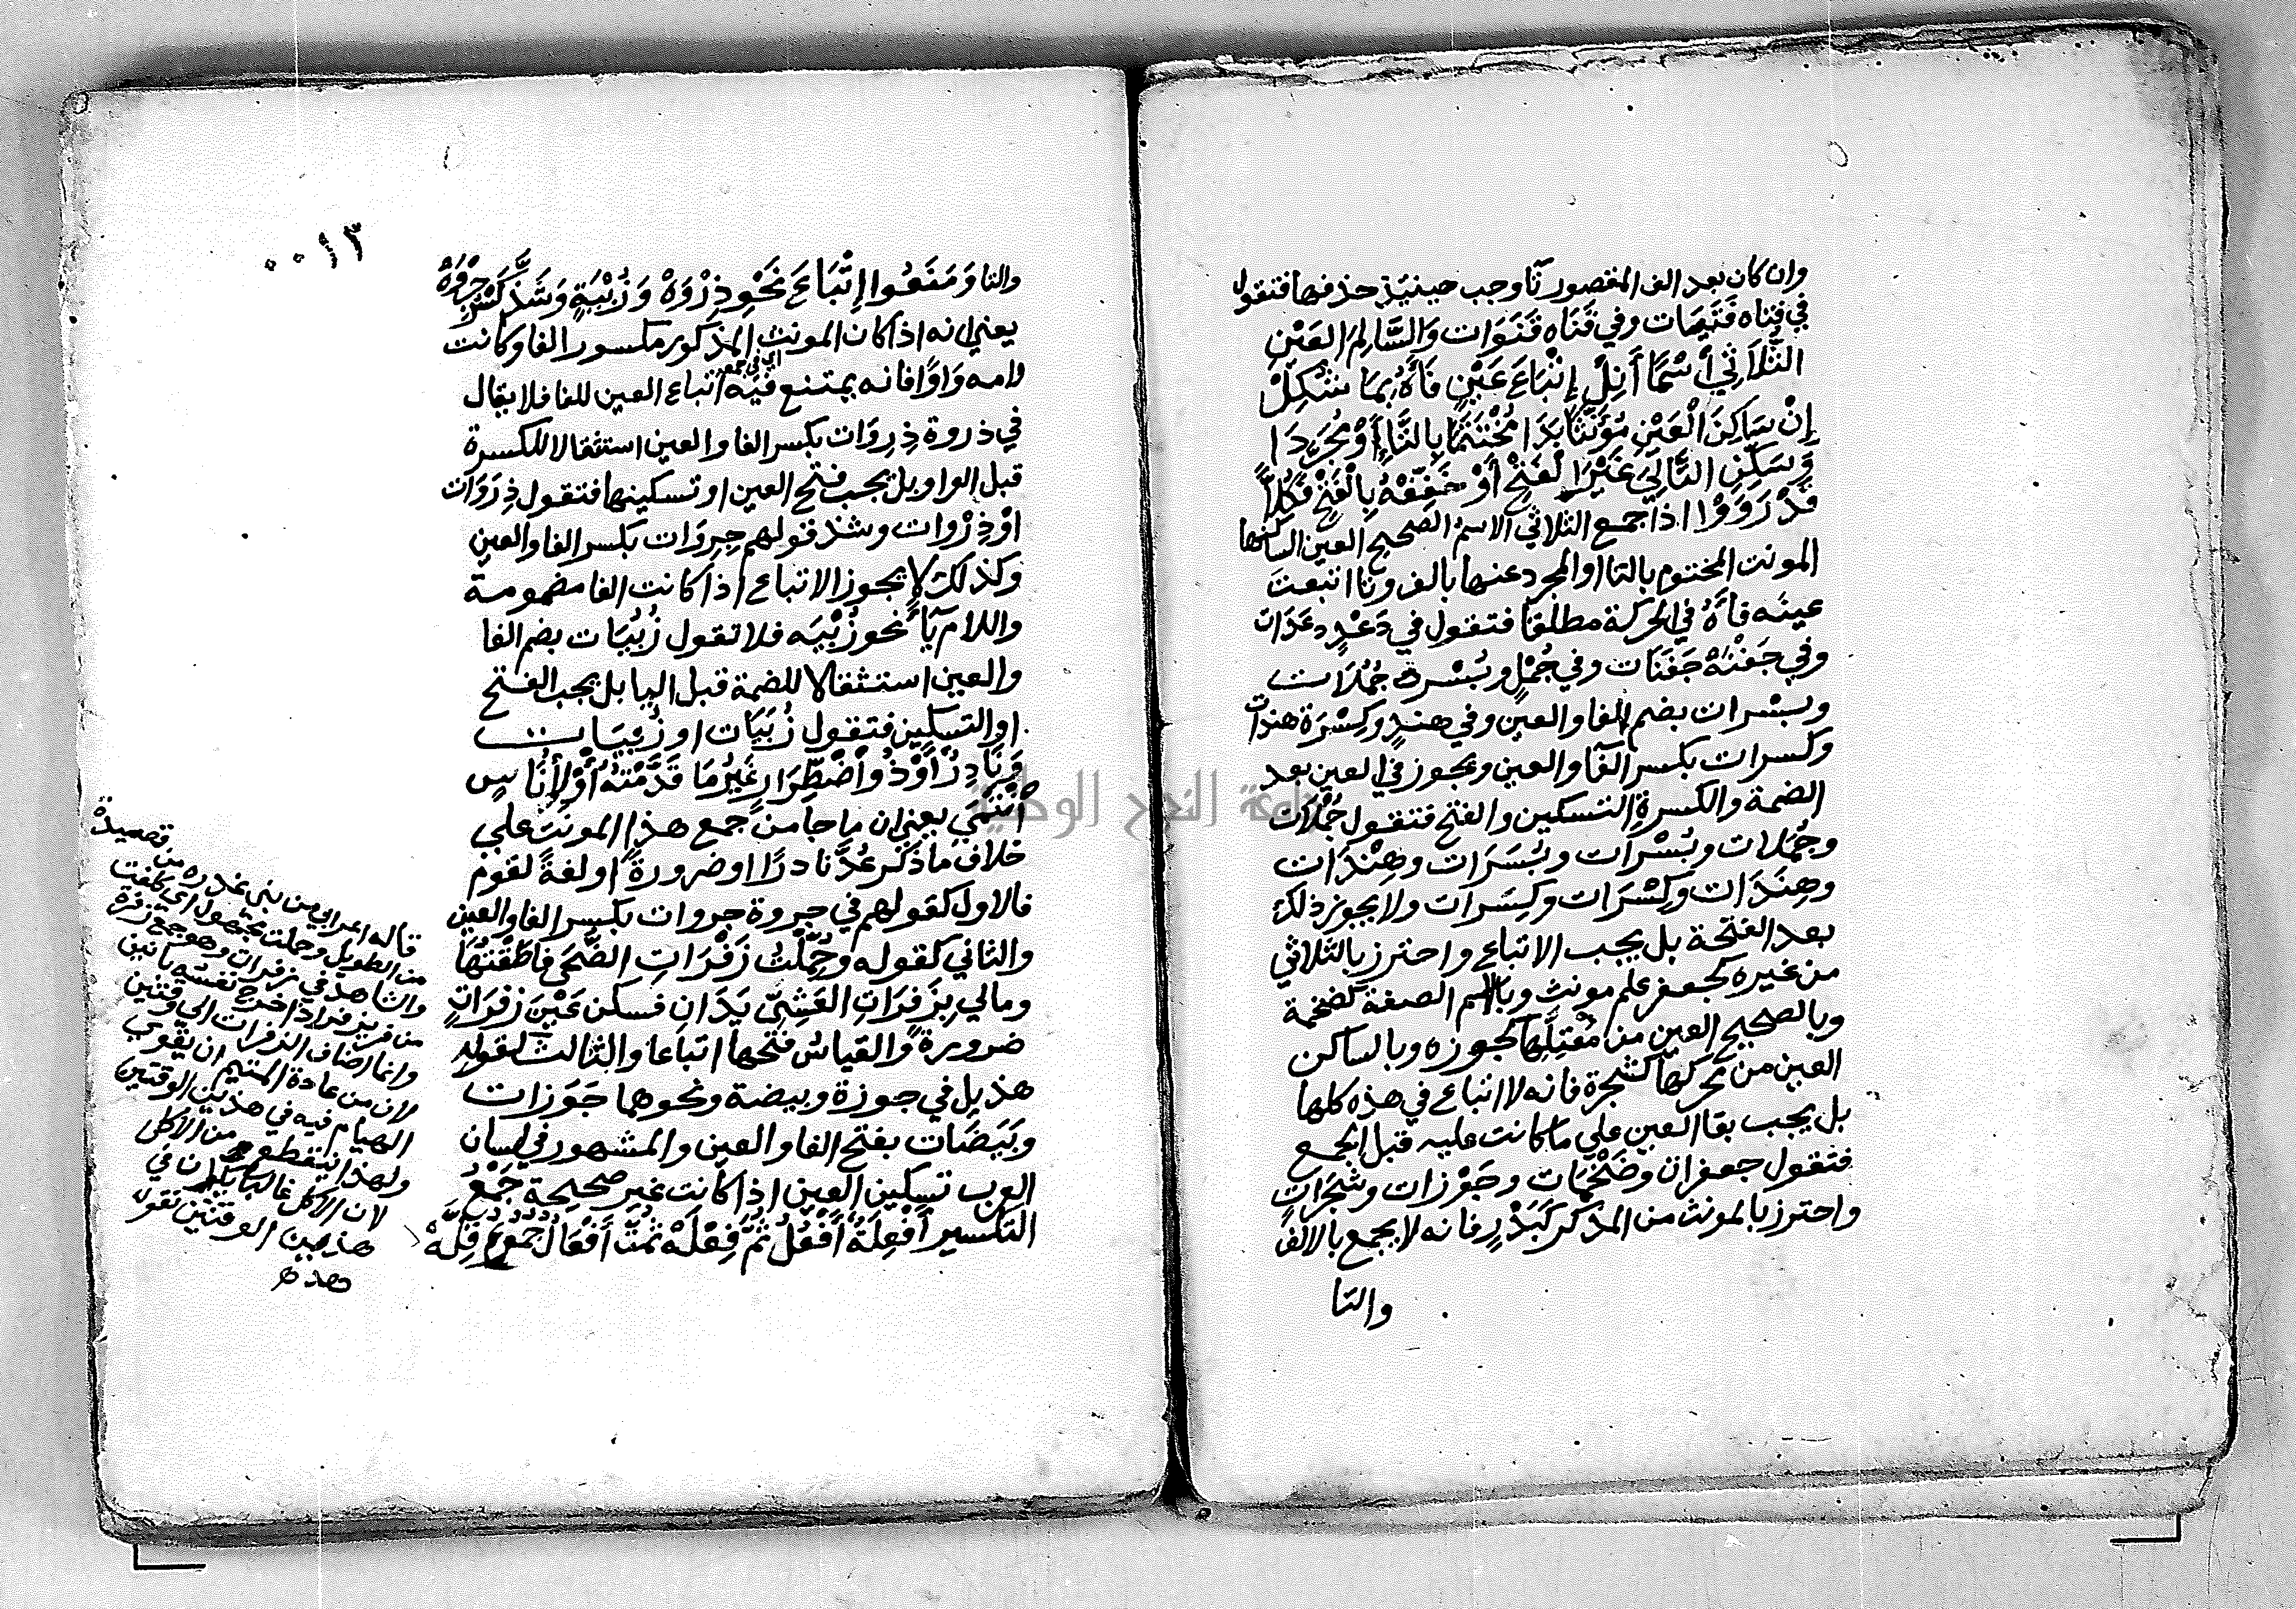 وان كان بعد الف المقصور تآ وجب حينيذ حذفها فتقول
في فتاه فَتَيَات وفي قَنَاه قَنَوَات وَالسَّالِمَ العَيْنِ
الثُّلاَثِي اْسْمًا أَنِلْ إِتْبَاعَ عَيْنٍ فَأَهُ بِمَا شُكِلْ
إِنْ سَاكِنَ الْعَيْنِ مُؤَنَّثًا بَدَا مُخْتَتَمًا بِالتَّاءِ أَوْ مُجَرَّدَا
وَسَكِّنِ التَّالِيَ غَيْرَ الْفَتْحِ أَوْ خَفِّفْهُ بِالْفَتْحِ فَكُلاًّ
قَدْ رَوَوْا اذا جمع الثلاثي الاسم الصحيح العين الساكنها
المونث المختوم بالتا او المجرد عنها بالف وتا اتبعت
عينه فاَهُ في الحركة مطلقا فتقول في دَعْدٍ دعَدَات
وفي جَفْنَهْ جَفَنَات وفي جُمْلٍ وبُسْرة جُمُلات
وبسُرات بضم الفا والعين وفي هندٍ وكِسْرَة هنِدات
وكسرات بكسر الفآ والعين ويجوز في العين بعد
الضمة والكسرة التسكين والفتح فتقول جُمْلات
وجُمَلات وبُسْرات وبُسَرَات وهِنْدَات
وهِنَدَات وكِسْرَات وكِسَرات ولا يجوز ذلك
بعد الفتحة بل يجب الاتباع واحترز بالثلاثي
من غيره كجعفر علم مونث وبالاسم الصفة كضخمة
وبالصحيح العين من مُعْتِلِّها كجوزه وبالساكن
العين من محركها كشجرة فانه لا اتباع في هذه كلها
بل يجب بقا العين علي ما كانت عليه قبل الجمع
فتقول جعفرات وضَخْمَات وجَوْزات وشَجَرَاتٍ
واحترز بالمونث من المذكر كَبَدْرٍ فانه لا يجمع بالالف
والتا
٠٠١٣
والتا وَمَنَعُوا إِتْبَاعَ نَحْوِ ذِرْوَهْ وَزُبْيَةٍ وَشَذَّ كَسْرُ جِرْوَهْ
يعني انه اذا كان المونث المذكور مكسور الفا وكانت
لامه وَاوًا فانه يمتنع فيه اتباع العين للفا فلا يقال
اي في جمعه
في ذروة ذِرِوَات بكسر الفا والعين استثقالا للكسرة
قبل الواو بل يجب فتح العين او تسكينها فتقول ذِرَوَات
اوْ ذِرْوات وشذ قولهم جِرِوَات بكسر الفا والعين
وكذلك لا يجوز الاتباع اذا كانت الفا مضمومة
واللام يَآ نحو زُبْيَه فلا تقول زُبُيَات بضم الفا
والعين استثقالا للضمة قبل اليا بل يجب الفتح
او التسكين فتقول زُبَيَات او زُبْيَات
وَنَادِرٌ أَوْ ذُو اْضْطِرَارٍ غَيْرُ مَا قَدَّمْتُهُ أَوْ لأُنَاسٍ
اْنْتَمَي يعني ان ما جا من جمع هذا المونث علي
خلاف ما ذكر عُدَّ نادرًا او ضرورةً او لغةً لقوم
فالاول كقولهم في جروة جروات بكسر الفا والعين
والثاني كقوله وحُمِّلْتُ زَفْرَاتِ الضُّحَى فاَطَقْتُهَا
ومالي بزَفْرَاتِ العَشِيِّ يَدَانِ فسكن عَيْنَ زَفْرَاتٍ
ضرورةً والقياسُ فتحها اتباعا والثالث كقول
هذيل في جوزة وبيضة ونحوهما جَوَزات
وبَيَضَات بفتح الفا والعين والمشهور في لسان
العرب تسكين العين اذا كانت غير صحيحة جَمْعُ
التكسير أَفْعِلَةٌ أَفْعُلُ ثُمَّ فِعْلَهْ ثُمَّتَ أَفْعَالٌ جُمُوعُ قِلَّهْ
قاله اعرابي من بني عذره من قصيدة
من الطويل وحملت مجهول اي كلفت
والشاهد في زفرات وهو جمع زفرة
من زفر يزفر اذا اخرج نفسه بانين
وانما اضاف الزفرات الي وقتين
لان من عادة المتيم ان يقوي
الهيام فيه في هذين الوقتين
ولهذا ينقطع من الاكل
لان الاكل غالبا يكون في
هذين الوقتين نقول
جامعة النجاح الوطنية